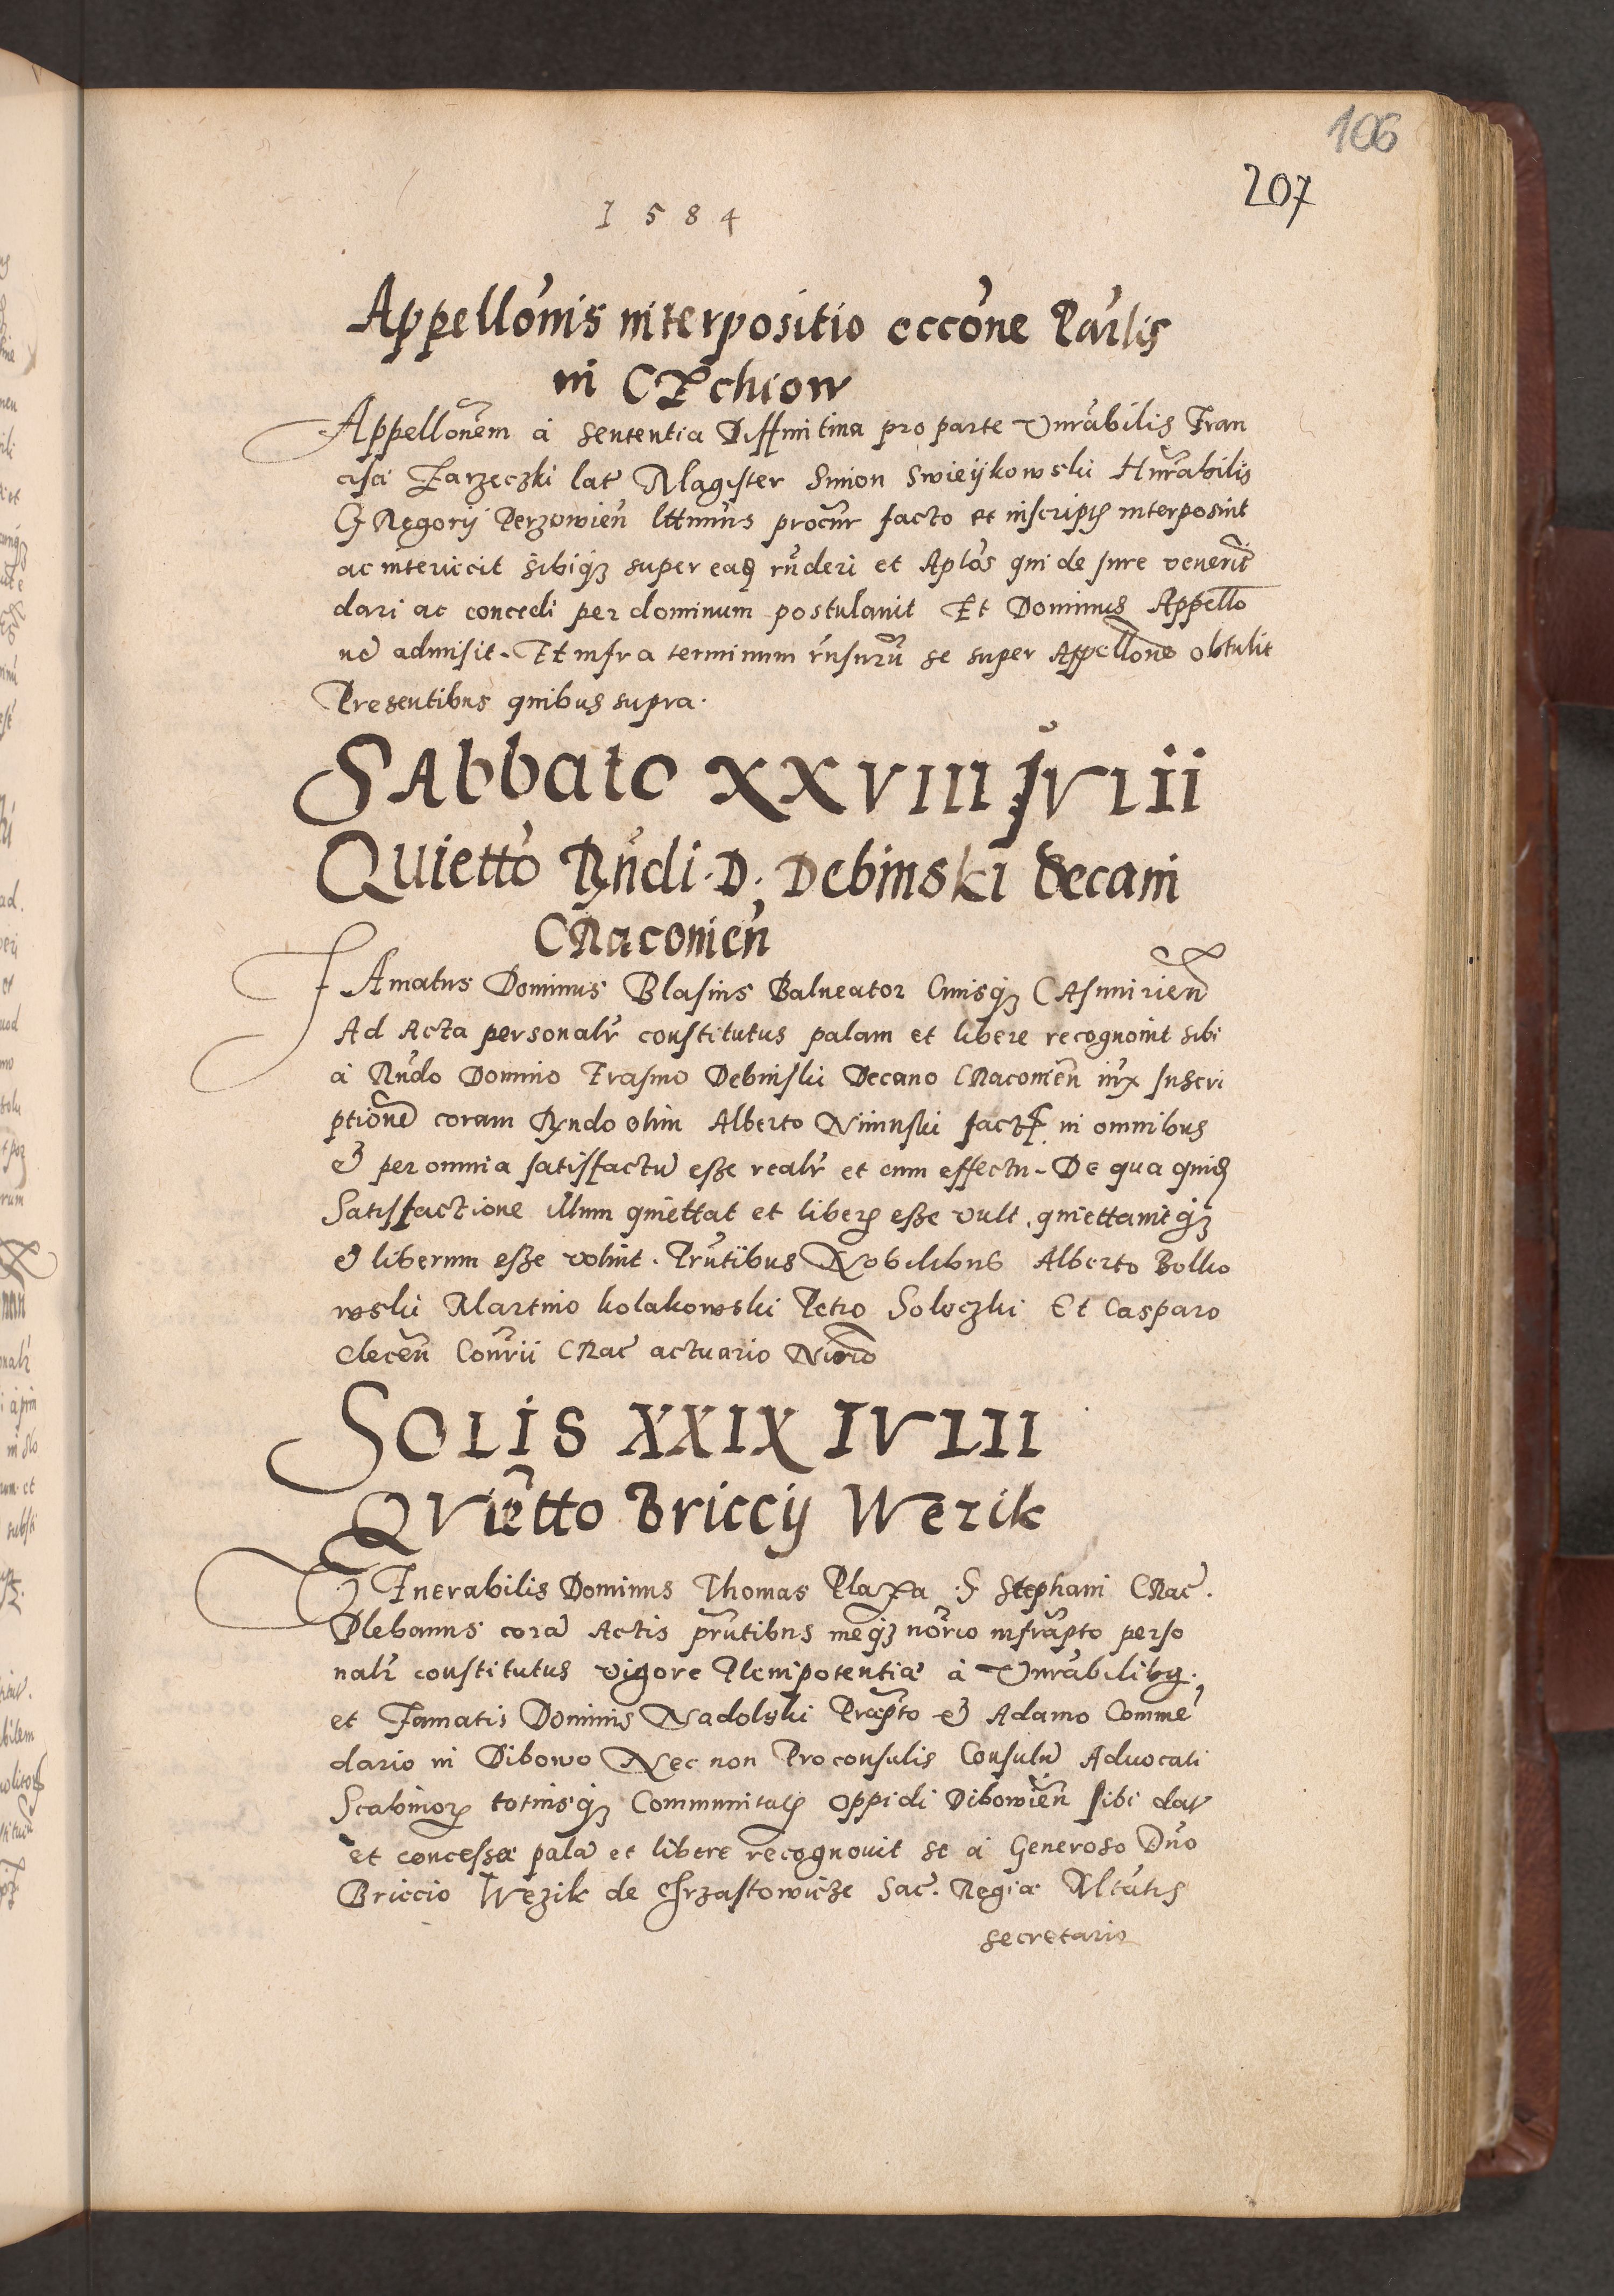 106
207
1584
Appellonis interpositio eccōne Parlis
in CRchiow
Appellonem a sententia Diffinitiua pro parte Vnrabilis Fran
cisci Zarzeczki lat Magister Simon Swieykowski Hnrabilis
GRegorij Perzowien lttimus procur facto et inscriptis interposuit
ac interiecit sibiq3 super eas rnderi et Aplos qui de jure venerit
dari ac concedi per dominum postulauit Et Dominus Appello
ne admisit. Et infra terminum rnsurū se super Appellone obtulit
Presentibus quibus supra.
SAbbato XXVIII IVLii
QUietto Rndi. D. Debinski Decani
CRaconien
FAmatus Dominus Blasius Balneator Ciuisq3 CAsimirien
Ad Acta personalr constitutus palam et libere recognouit sibi
a Rndo Domino Erasmo Debinski Decano CRaconien iux Inscri
ptione coram Rndo olim Alberto Niminski fact in omnibus
& per omnia satisfactū esse realr et cum effectu. De qua quid
Satisfactione illum quiettat et liber esse vult, quiettauitq3
& liberum esse voluit. Prntibus Nobilibus Alberto Bolko
wski Martino kolakowski Petro Soleczki Et Casparo
clecen Conrii CRac actuario Nirio
SOLIS XXIX IVLII
QVietto Briccij Wezik
VEnerabilis Dominus Thomas Plaza S Stephani CRac.
Plebanus corā Actis prntibus meq3 norio infrapto perso
nalr constitutus vigore Plenipotentiæ a Vnrabilibq.
et Famatis Dominis Nadolski Præpto & Adamo Commē
dario in Dibowo Nec non Proconsulis Consulū Aduocati
Scabinor totiusq3 Communitatis oppidi Dibowien sibi dat
et concessæ palā et libere recognouit se a Generoso Dno
Briccio Wezik de chrzastowicze Sac. Regiæ Mtatis
secretario